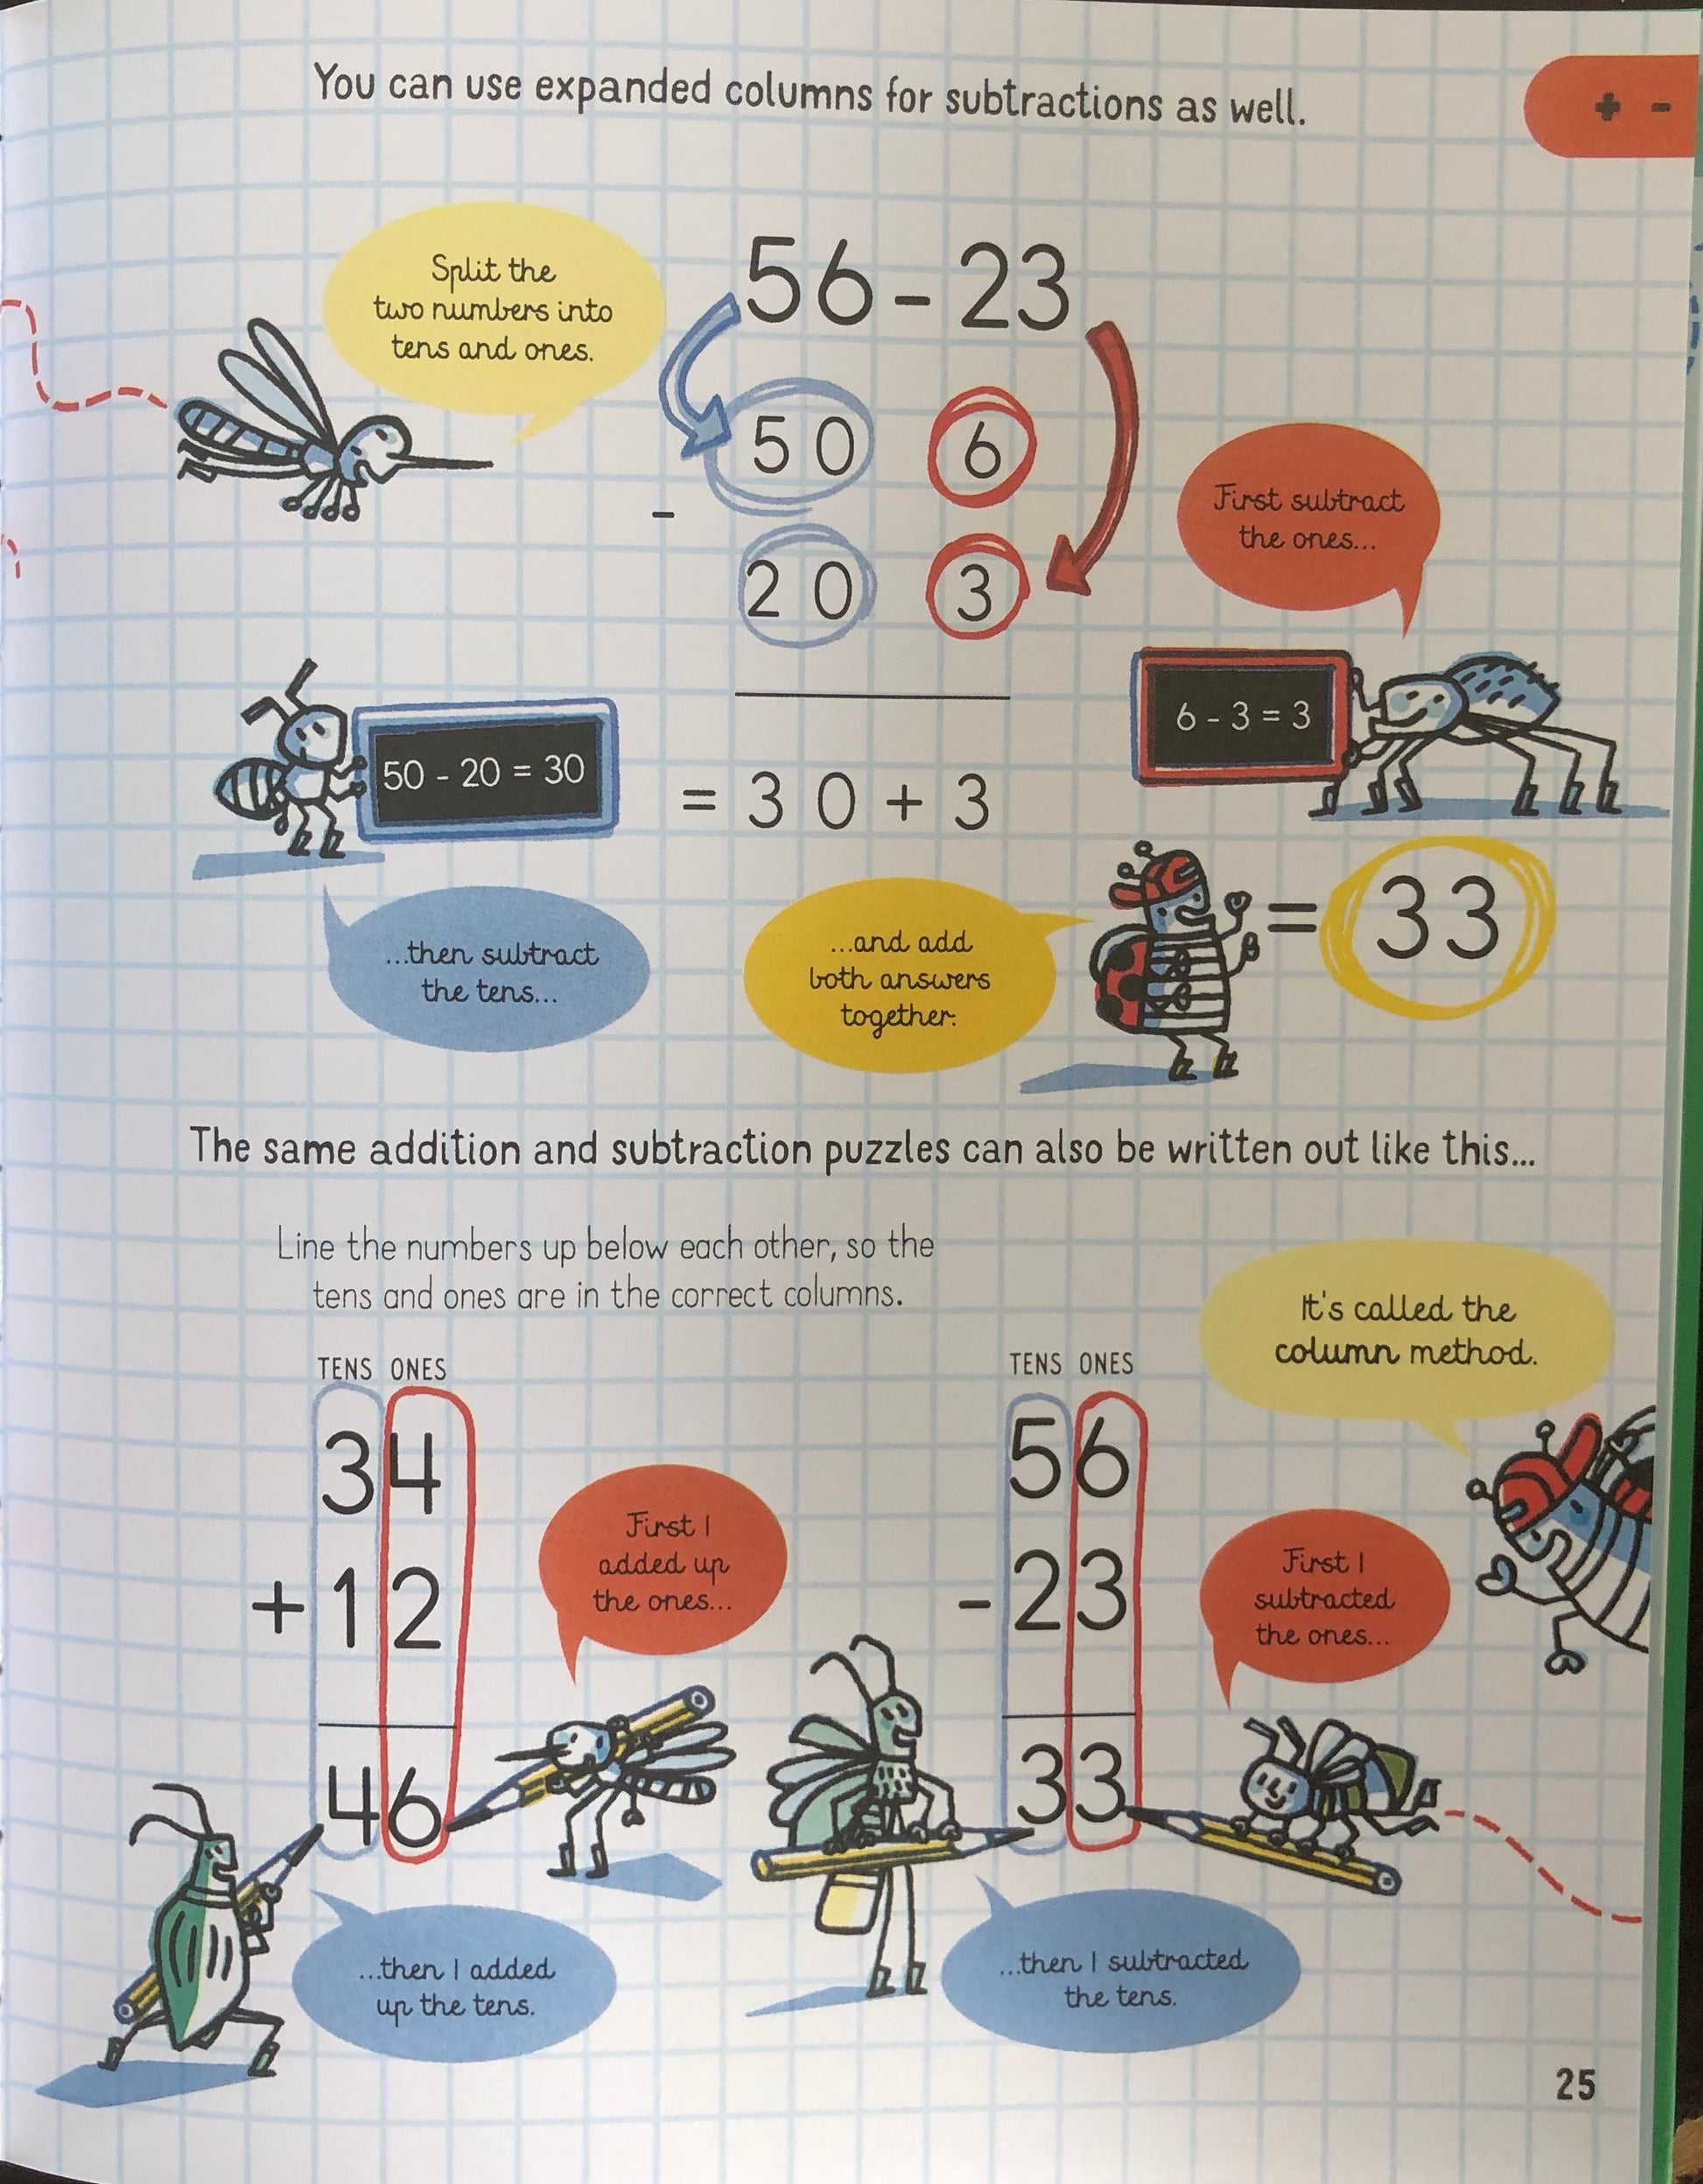 You can use expanded columns for subtractions as well.
+ -
Split the
two numbers into
tens and ones.
56 - 23
50 6
-
20 3
First subtract
the ones...
6 - 3 = 3
50 - 20 = 30
= 30 + 3
...then subtract
the tens...
...and add
both answers
together.
= 33
The same addition and subtraction puzzles can also be written out like this...
Line the numbers up below each other, so the
tens and ones are in the correct columns.
TENS ONES
34
+12
46
First I
added up
the ones...
...then I added
up the tens.
TENS ONES
56
-23
33
It's called the
column method.
First I
subtracted
the ones...
...then I subtracted
the tens.
25